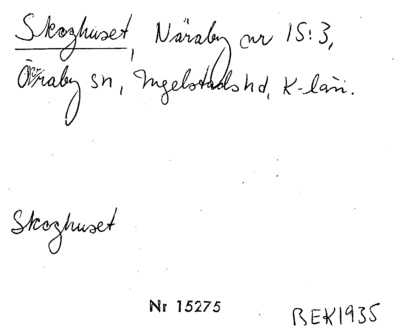 Skoghuset, Näraby nr 15:3,
Öraby sn, Ingelstads hd, K-län.
Skoghuset
Nr 15275
BEK1935